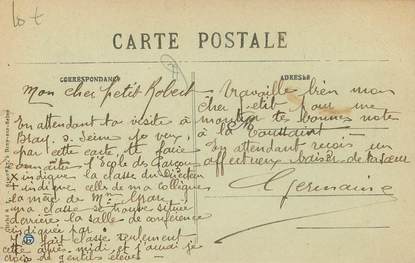 Lot
CARTE POSTALE
CORRESPONDANCE
ADRESSE
Mon cher petit Robert
En attendant ta visite à
Bray s. Seine je veux,
par cette carte, te faire
connaître l'Ecole des Garçons
x indique la classe du Directeur
+ indique celle de ma collègue
la mère de Mr
ma classe se trouve située
derrière la salle de conférence
indiquée par
Il fait classe seulement
cette après midi et j'aurai je
crois de gentils élèves -
- Travaille bien mon
cher petit pour me
montrer tes bonnes notes
à la Toussaint -
En attendant reçois un
affectueux baiser de ta sœur
Germaine